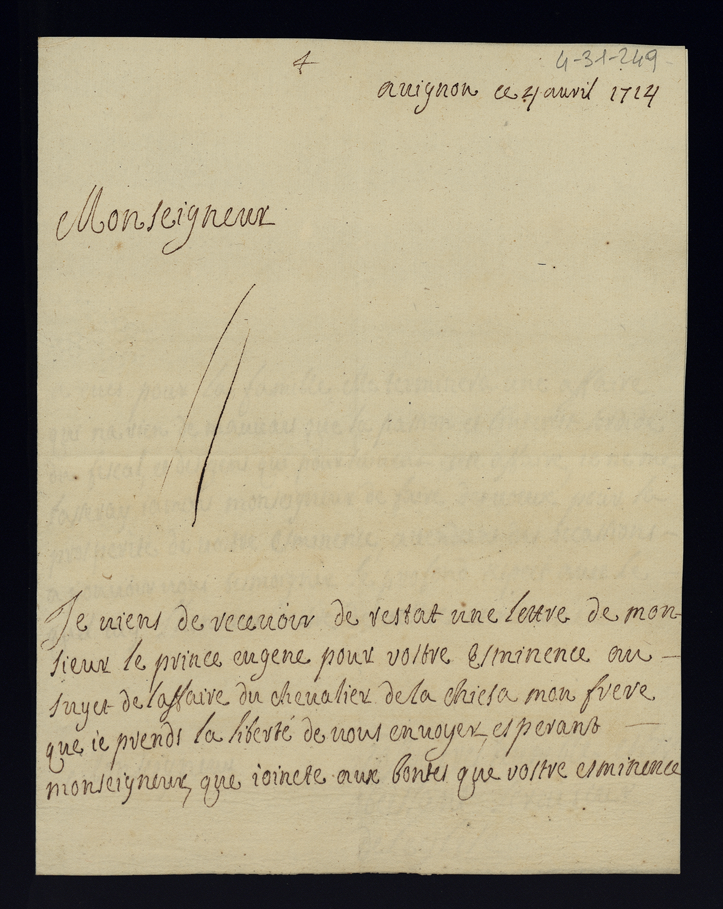 4
4-31-249
auignon ce 4 auvril 1714
Monseigneur
Je uiens de receuoir de restat une lettre de mon-
sieur le prince eugene pour vostre Esminence au
suyet de l'affaire du cheualier de la chiesa mon frere
que ie prends la liberté de uous enuoyer, esperant
monseigneur, que ioincte aux bontes que vostre esminence